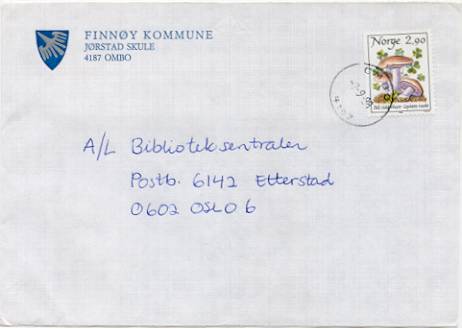 FINNØY KOMMUNE
JØRSTAD SKULE
4187 OMBO
Norge 2,90
A/L Biblioteksentralen
Postb. 6142 Etterstad
0602 OSLO 6